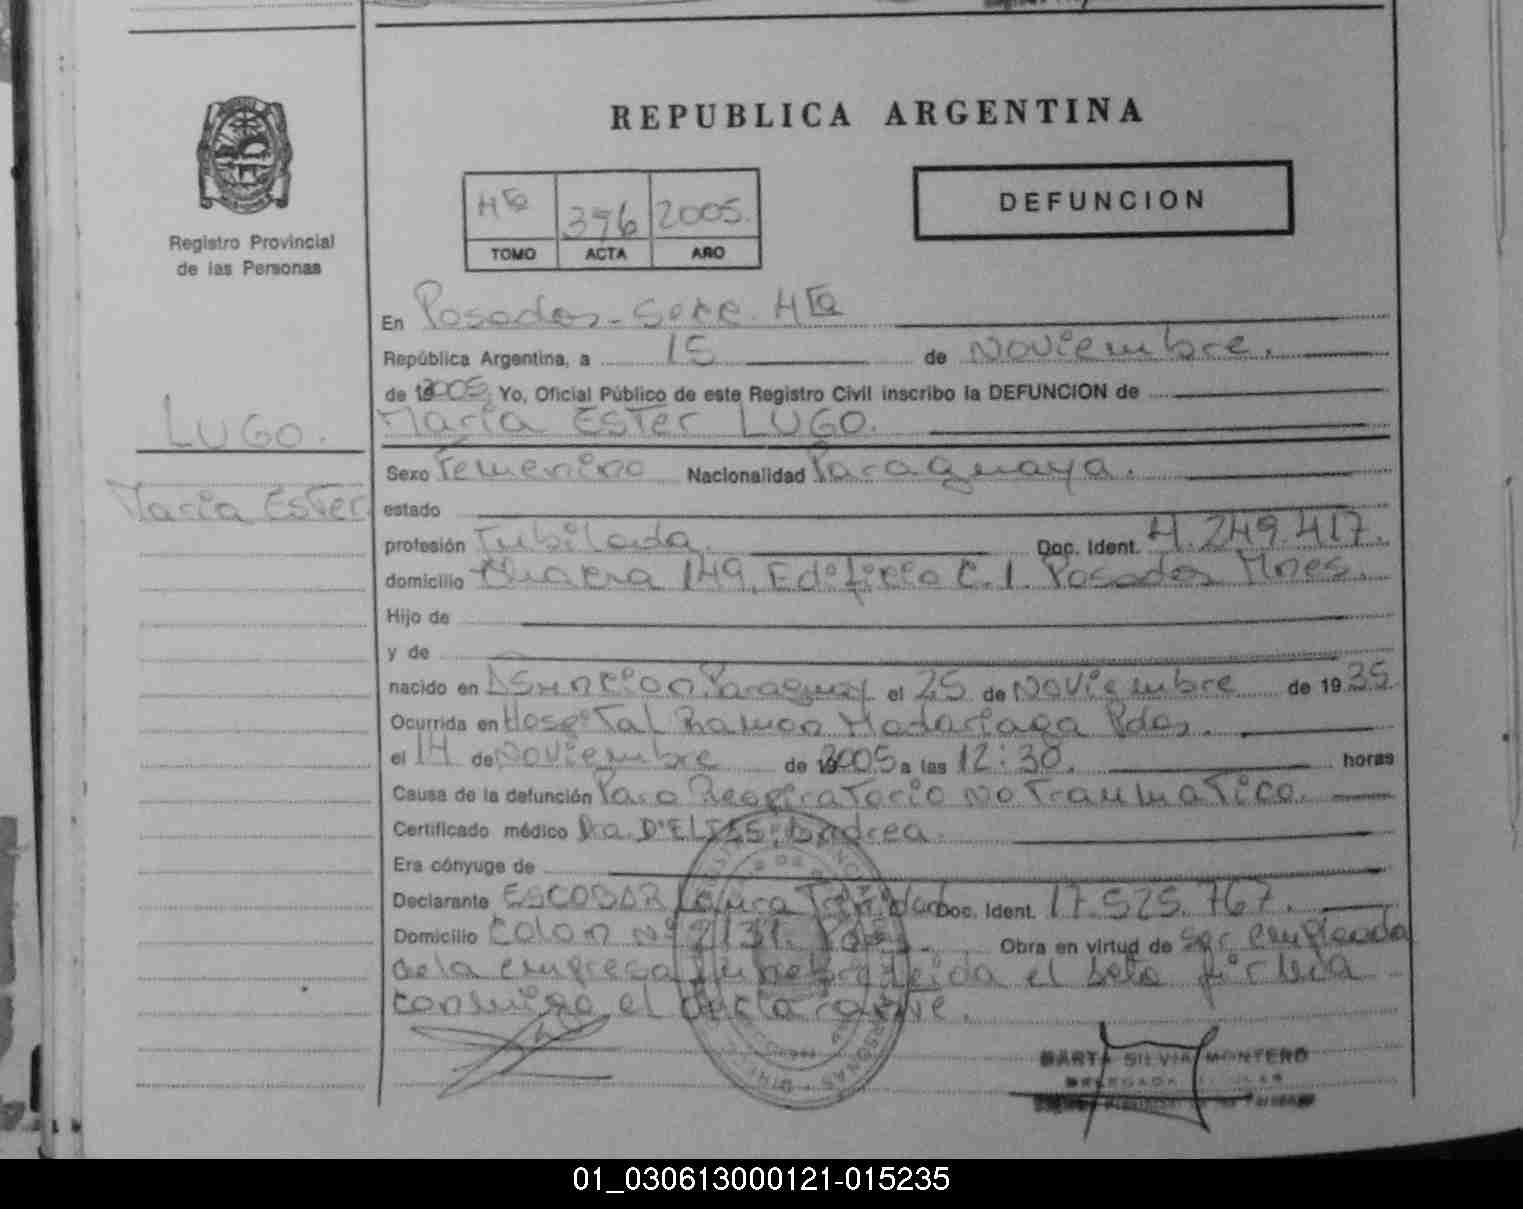 REPUBLICA ARGENTINA
DEFUNCION
Registro Provincial
de las Personas
4ta 396 2005.
TOMO ACTA AÑO
En Posadas - Secc. 4ta
República Argentina, a 15 de Noviembre.
de 2005. Yo, Oficial Público de este Registro Civil inscribo la DEFUNCION de
LUGO.
María Ester LUGO.
Sexo Femenino Nacionalidad Paraguaya.
María Ester
estado
profesión Jubilada. Doc. Ident. 4.249.417.
domicilio Chacra 149, Edificio C.1. Posadas Mnes.
Hijo de
y de
nacido en Asuncion Paraguay el 25 de Noviembre de 1935.
Ocurrida en Hospital Ramon Madariaga Pdas.
el 14 de Noviembre de 2005 a las 12:30. horas
Causa de la defunción Paro Respiratorio no Traumatico.
Certificado médico Dra. D'ELISS, Andrea.
Era cónyuge de
Declarante ESCOBAR Laura Trinidad Doc. Ident. 17.525.767.
Domicilio Colon Nº 2131. Pdas. Obra en virtud de Ser empleada
de la empresa funebre leida el acta firma
conmigo el declarante.
MARTA SILVIA MONTERO
DELEGADA TITULAR
01_030613000121-015235